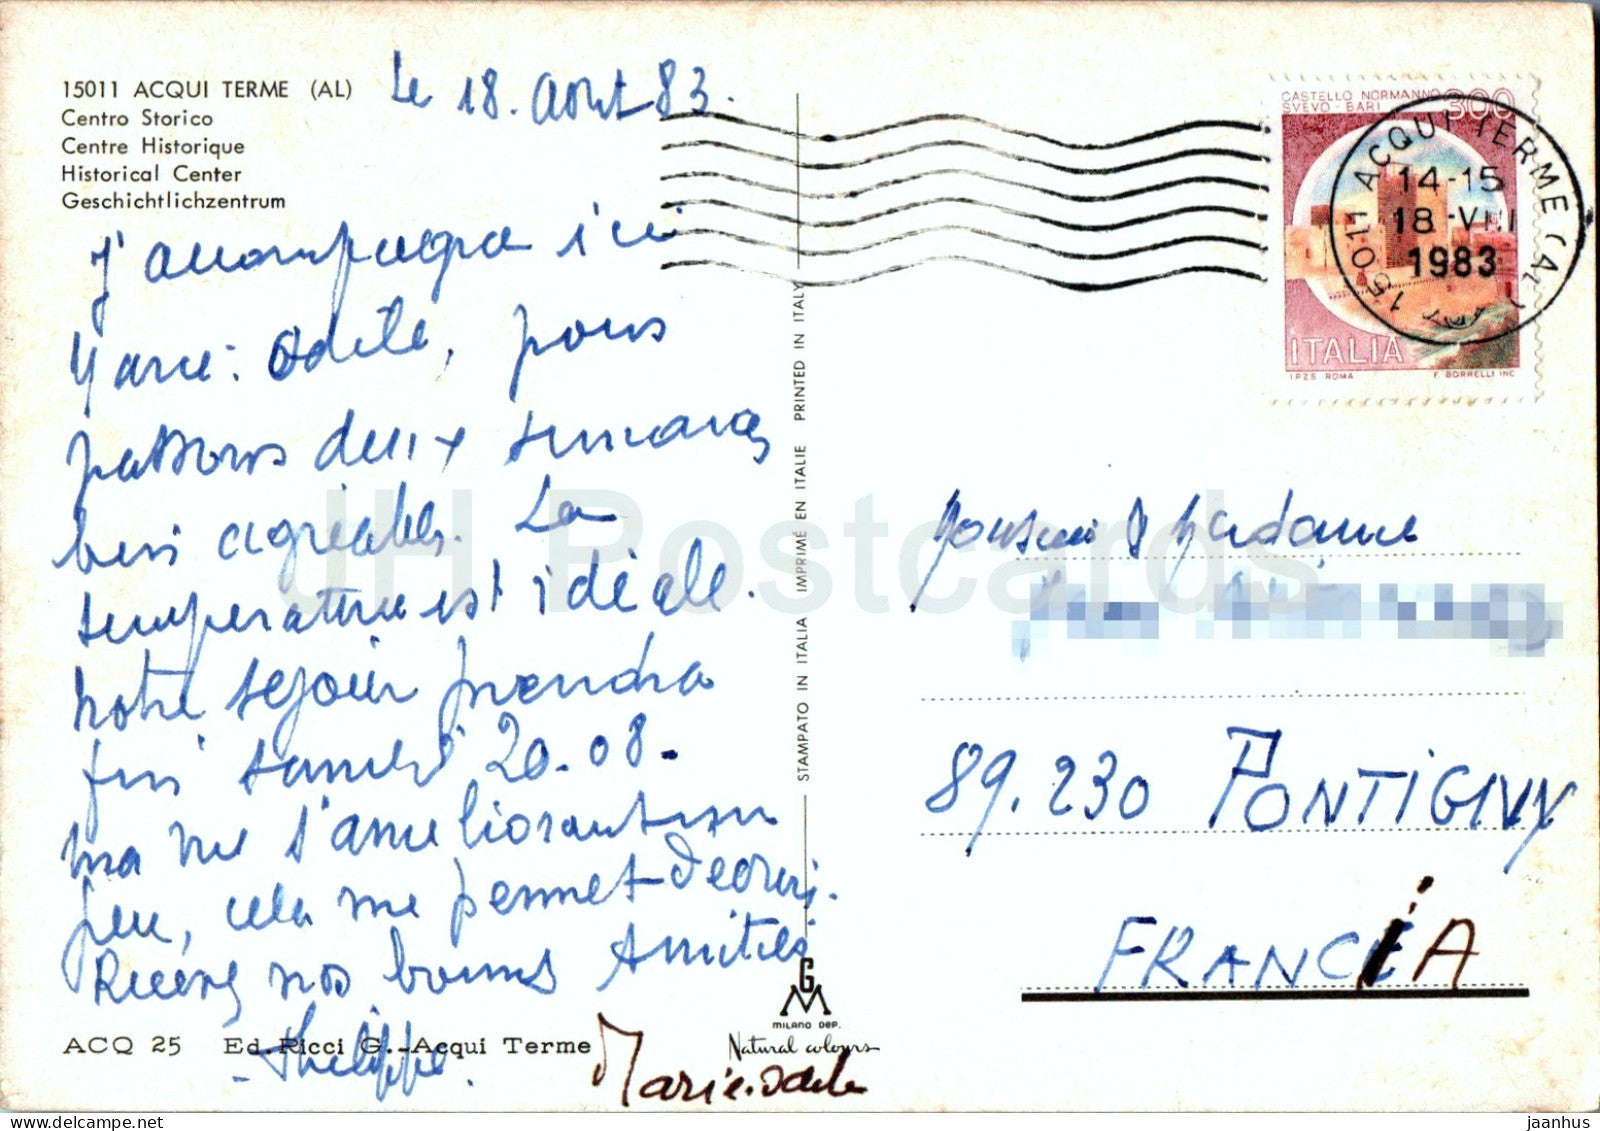 15011 ACQUI TERME (AL)
Centro Storico
Centre Historique
Historical Center
Geschichtlichzentrum
Le 18. Août 83.
J'accompagne ici
Marie-Odile, nous
passons deux semaines
bien agréables. La
température est idéale.
notre séjour prendra
fin samedi 20-08.
ma vue s'améliorant un
peu, cela me permet d'écrire.
Recevez nos bonnes Amitiés
Philippe.
Marie.Odile
ACQ 25 Ed. Ricci G. - Acqui Terme
STAMPATO IN ITALIA IMPRIMÉ EN ITALIE PRINTED IN ITALY
GM
MILANO DEP.
Natural colours
CASTELLO NORMANNO
SVEVO - BARI 300
ITALIA
I.P.Z.S. ROMA F. BORRELLI INC
15011 ACQUI TERME (AL)
14-15
18-VIII
1983
Monsieur & Madame
89.230 PONTIGNY
FRANCIA
JH Postcards
delcampe.net
jaanhus